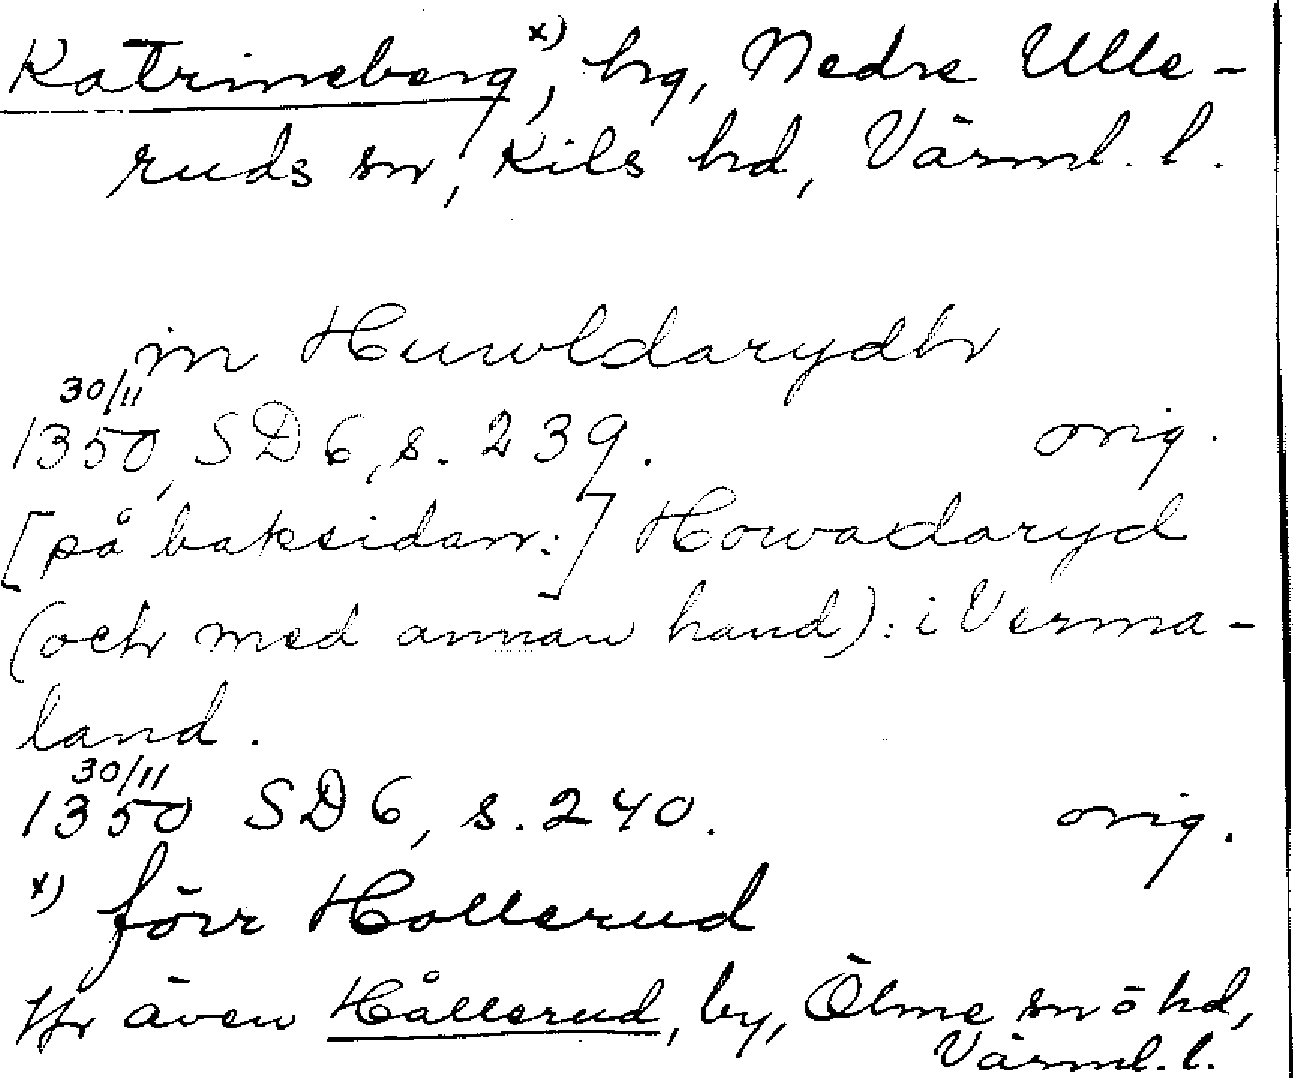 Katrineberg x), hg, Nedre Ulle-
ruds sn, Kils hd, Värml. l.
in Huwldarydhr
30/11
1350, SD 6, s. 239. orig.
[på baksidan:] Howadaryd
(och med annan hand): i Verma-
land.
30/11
1350 SD 6, s. 240. orig.
x) förr Hollerud
Jfr även Hållerud, by, Ölme sn o hd,
Värml. l.